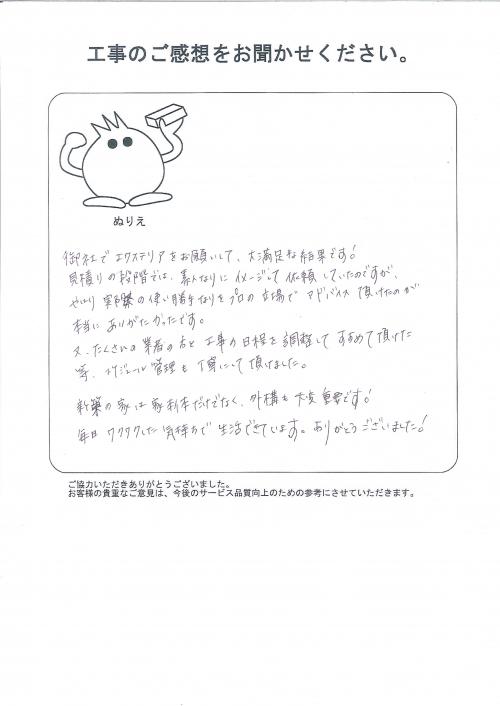 工事のご感想をお聞かせください。
ぬりえ
御社でエクステリアをお願いして、大満足な結果です！
見積りの段階では、素人なりにイメージして依頼していたのですが、
やはり実際の使い勝手なりをプロの立場でアドバイス頂けたのが
本当にありがたかったです。
又、たくさんの業者の方と工事の日程を調整してすすめて頂けた
等、スケジュール管理も丁寧にして頂けました。
新築の家は家本体だけでなく、外構も大変重要です！
毎日ワクワクした気持ちで生活できています。ありがとうございました！
ご協力いただきありがとうございました。
お客様の貴重なご意見は、今後のサービス品質向上のための参考にさせていただきます。